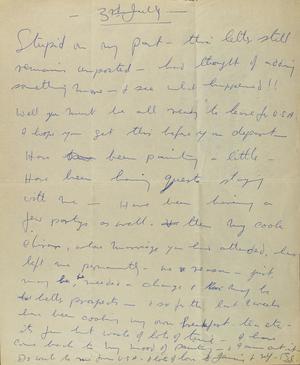 - 3rd July -
Stupid on my part - this letter still
remains unposted - had thought of adding
something more - & see what happened!!
Well you must be all ready to leave for U.S.A
I hope you get this before your depart
Have been painting a little -
Have been having guests staying
with me - Have been having a
few partys as well. then my cook
whose marriage you had attended, has
left me permanently - no reason - just
may be needed a change & may be
better prospects - & so for the last 2 weeks
have been cooking my own breakfast - tea etc -
its fun but waste of lots of time - I have
come back to my mood of painting -
Do write to me from USA - & lots of love to